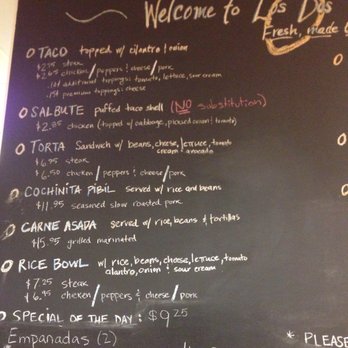 Welcome to Los Dos
Fresh, made
TACO topped w/ cilantro & onion
$2.95 steak
$2.65 chicken/peppers & cheese/pork
1st additional toppings: tomato, lettuce, sour cream
1st premium toppings: cheese
SALBUTE puffed taco shell (NO substitution)
$2.85 chicken (topped w/ cabbage, pickled onion & tomato)
TORTA Sandwich w/ beans, cheese, lettuce, tomato
cream & avocado
$6.95 steak
$6.50 chicken / peppers & cheese/pork
COCHINITA PIBIL served w/ rice and beans
$11.95 seasoned slow roasted pork
CARNE ASADA served w/ rice, beans & tortillas
$15.95 grilled marinated
RICE BOWL w/ rice, beans, cheese, lettuce, tomato
cilantro, onion & sour cream
$7.25 steak
$6.95 chicken/peppers & cheese/pork
SPECIAL OF THE DAY: $9.25
Empanadas (2)
* PLEASE